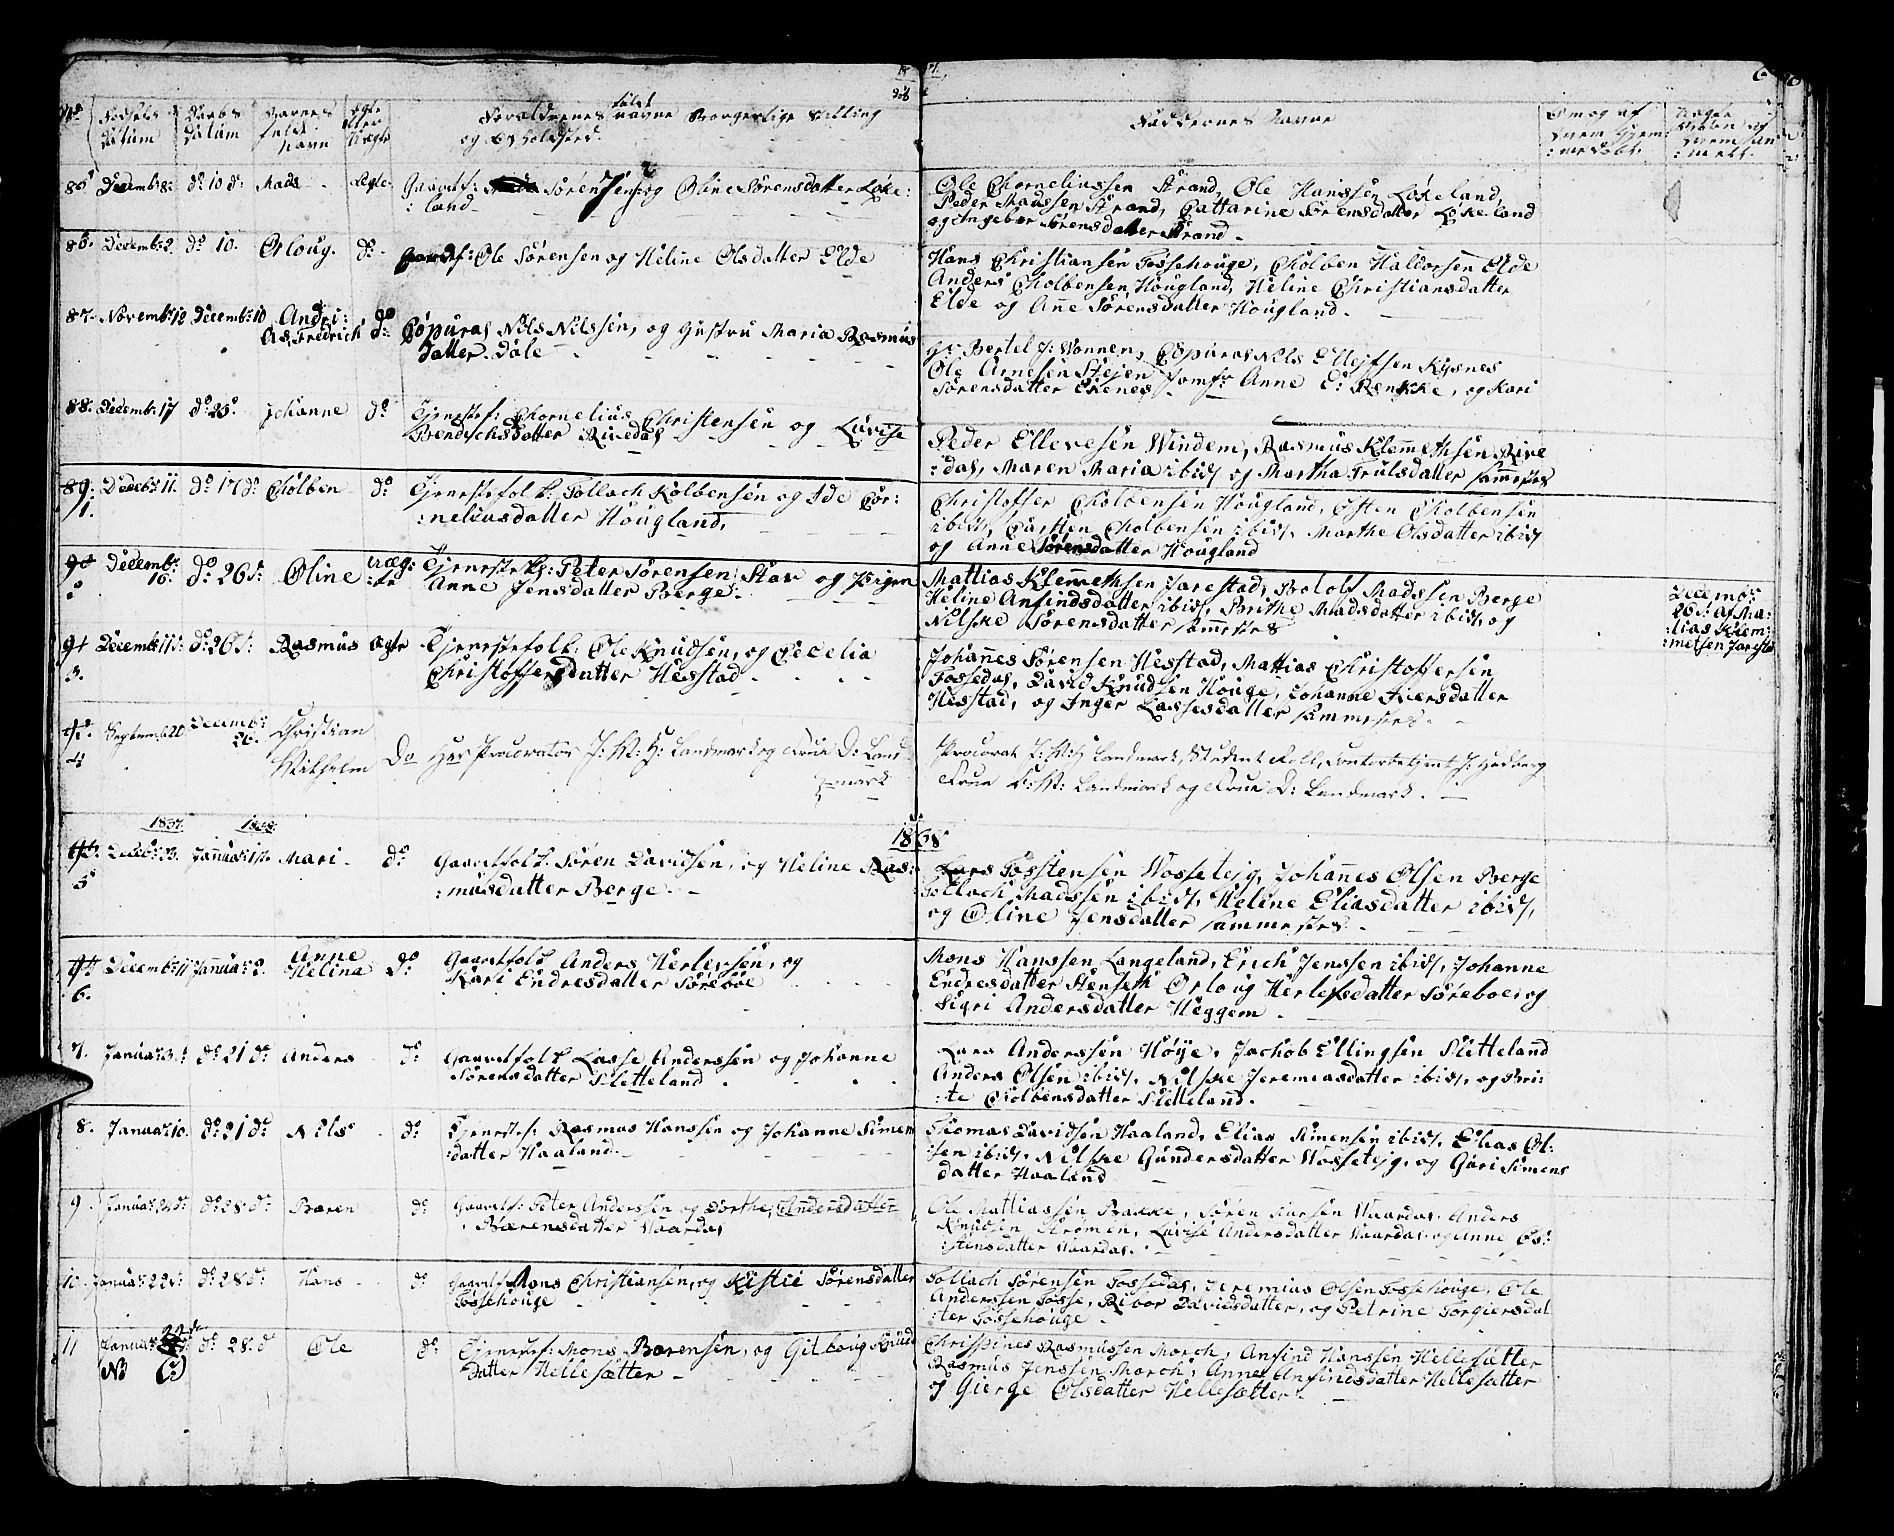 18 37.
No Fødsels Daabs Barnets Egte Forældrenes fulde navne Borgerlige Stilling
datum datum fulde Navn eller Uægte og Opholdsted.
Faddernes Navne
85 Decemb: 8: do 10 do: Mads - Ægte- Gaardf: Sørensen og Oline Sørensdatter Løke:
:land
Ole Chorneliussen Strand, Ole Hanssen Løkeland,
Peder Madssen Strand, Catharine Sørensdatter Løkeland
og Ingebor Sørensdatter Strand -
86. Decemb: 2. do 10. Orloug. do - Gaardf: Ole Sørensen og Heline Olsdatter Elde
Hans Christiansen Fossehouge, Cholben Haldorsen Elde
Anders Cholbensen Hougland, Heline Christiansdatter
Elde og Anne Sørensdatter Hougland. -
87. Novemb: 12 Decemb: 10 Andri:
as Fredrich do: Nils Nilsen, og Hustru Maria Rasmus
datter Dale
Hr: Bertel J: Nonnen, Nils Ellefsen Kysnes
Ole Arnesen Steien Jomfr: Anne E: Renche, og Kari
Sørensdatter Ekenes
88. Decemb: 17 do 25. Johanne do Tjenestf: Chornelius Christensen og Lavise
Bendichsdatter Rivedal
Peder Ellevesen Windem, Rasmus Klemmethsen Rive
:dal, Maren Maria ibid, og Martha Trulsdatter sammesteds
89. Deceb: 11. do 17 do: Cholben do Tjenestefolk: Tollach Kolbensen og Ide Cor:
1. :neliusdatter Hougland,
Christoffer Cholbensen Hougland, Osten Cholbensen
ibid, Carsten Cholbensen ibid, Marthe Olsdatter ibid
og Anne Sørensdatter Hougland
90 Decemb: 16. do: 26 d: Oline uæg:
2 :te Peter Sørensen Stav og Pigen
Anne Jensdatter Berge.
Mattias Klemmethsen Jarestad, Botolf Madssen Berge
Heline Anfindsdatter ibid, Brithe Madsdatter ibid, og
Nilske Sørensdatter sammesteds
Decemb:
26 d: af Ma:
:tias Klem:
:metsen Jarestad
91 Decemb: 11 d: do 26 d: Rasmus ægte Tjenestefolk: Ole Knudsen, og Cecelia
3. Christoffersdatter Hestad
Johannes Sørensen Hestad, Mattias Christoffersen
Fossedal, David Knudsen Houge, Johanne Iversdatter
Hestad, og Inger Lassesdatter sammesteds.
92. Septemb: 20 Decemb: 26. Christian
4 Wilhelm Do Herr Procurator J: W: H: Landmark og Frue D: Land
mark
Procurat J: W: Landmark, Student Koll, J: Hedberg
Frue D: Landmark. -
1837. 1838. 1838
Deceb: 23. Januar: 14. Mari - do Gaardfolk: Søren Davidsen, og Heline Ras:
5 :musdatter Berge. -
Lars Tostensen Nossetejg, Johannes Olsen Berge
Tollach Madssen ibid, Heline Eliasdatter ibid,
og Oline Jensdatter sammesteds.
Decemb: 11 Januar: Anne
6. Helina do: Gaardfolk Anders Herlevsen, og
Kari Endresdatter Sørebøe
Mons Hanssen Langeland, Erich Jenssen ibid, Johanne
Endresdatter Stenseth Orloug Herlefsdatter Sørebøe og
Sigri Andersdatter Heggem -
7. Januar: 3. do 21 do: Anders do: Gaardfolk Lasse Anderssen og Johanne
Sørensdatter Sletteland.
Lars Anderssen Høije, Jachob Ellingsen Sletteland
Anders Olsen ibid, Nilske Jeremiasdatter ibid, og Bri:
:te Cholbensdatter Sletteland.
8. Januar 10. do 21 do: Nils do: Tjenestf: Rasmus Hanssen og Johanne Simens
datter Haaland.
Thomas Davidsen Haaland, Elias Simensen ibid, Elias Ol:
:sen ibid, Nilske Gundersdatter Nossetejg, og Guri Simens
datter Haaland
9. Januar do: 28. do: Baren do: Gaardf: Peter Anderssen og Dorthe Andersdatter
Bærensdatter Vaardal
Ole Mattiassen Bakke, Søren Larsen Vaardal, Anders
Knudsen Strømen, Lavise Andersdatter Vaardal og Anne Os:
:stensdatter Vaardal.
10. Januar: 22 d: do 28 d: Hans - do Gaardf: Mons Christiansen, og Kistie Sørensdatter
Fossehouge
Tollach Sørensen Fossedal, Jeremias Olsen Fossehouge, Ole
Anderssen Fosse, Ribor Davidsdatter, og Petrine Torgiersdat
:ter Fossehouge
11 Januar: 22 d: do 28. d Ole do: Tjenestf: Mons Barensen, og Gilboug Knuds
NB datter Hellesætter -
Christines Rasmussen Morch, Anfind Hanssen Hellesætter
Rasmus Jenssen Morch, Anne Anfindsdatter Hellesætter
og Gierge Olsdatter Hellesætter.